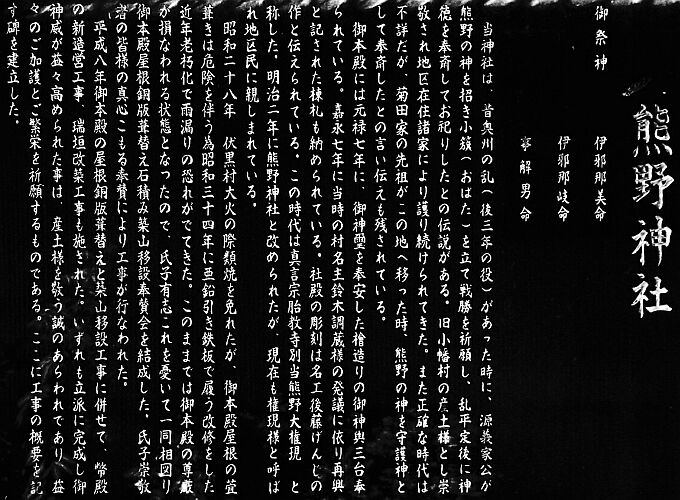 熊野神社
御祭神
伊邪那美命
伊邪那岐命
事解男命
当神社は、昔奥州の乱(後三年の役)があった時に、源義家公が
熊野の神を招き小籏(おばた)を立て戦勝を祈願し、乱平定後に神
徳を奉斎してお祀りしたとの伝説がある。旧小幡村の産土様とし崇
敬され地区在住諸家により護り続けられてきた。また正確な時代は
不詳だが、菊田家の先祖がこの地へ移った時、熊野の神を守護神と
して奉斎したとの言い伝えも残されている。
御本殿には元禄七年に、御神璽を奉安した檜造りの御神輿三台奉
られている。嘉永七年に当時の村名主鈴木調蔵様の発議に依り再興
と記された棟札も納められている。社殿の彫刻は名工後藤げんじの
作と伝えられている。この時代は真言宗胎教寺別当熊野大権現 と
称した。明治二年に熊野神社と改められたが、現在も権現様と呼ば
れ地区民に親しまれている。
昭和二十八年 伏黒村大火の際類焼を免れたが、御本殿屋根の萓
葺きは危険を伴う為昭和三十四年に亜鉛引き鉄板で履う改修をした
近年老朽化で雨漏りの恐れがでてきた。このままでは御本殿の尊厳
が損なわれる状態となったので、氏子有志これを憂いて一同相図り
御本殿屋根銅版葺替え石積み築山移設奉賛会を結成した。氏子崇敬
者の皆様の真心こもる奉賛により工事が行なわれた。
平成八年御本殿の屋根銅版葺替えと築山移設工事に併せて、幣殿
の新造営工事、瑞垣改築工事も施された。いずれも立派に完成し御
神威が益々高められた事は、産土様を敬う誠のあらわれであり、益
々のご加護とご繁栄を祈願するものである。ここに工事の概要を記
す碑を建立した。